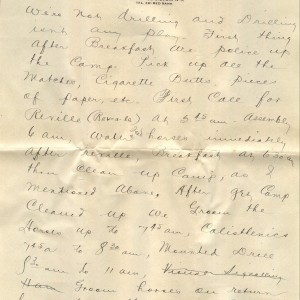 TEL. 591 RED BANK
We're not Drilling and Drilling
isn't any play. First thing
After Breakfast we police up
the Camp. Pick up all the
Matches, Cigarette Butts, Pieces
of paper, etc. First Call for
Reville (Revelee) At 5:45 am. Assembly
6 am. Water horses immediately
After reville, Breakfast at 6:30am
than Clean up Camp, as I
Mentioned Above, After the Camp
Cleaned up We Groom the
Horses up to 7:15 am, Calisthenics
7:45 to 8:30 am, Mounted Drill
8:30 am to 11 am, Mounted Signalling
Groom horses on return